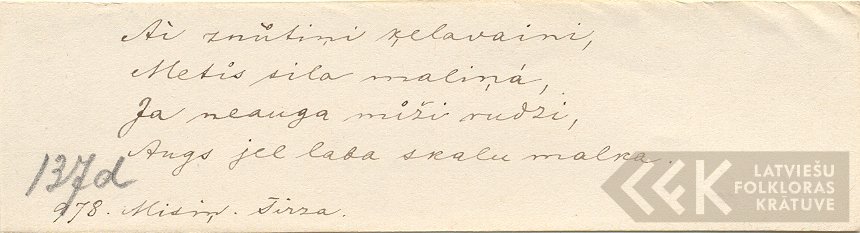 Ai znūtiņi ķelavaini,
Metīs sila maliņá,
Ja neauga mūži rudzi,
Augs jel laba skalu malka.
137d
978. Misiņ. Tirza.
LATVIEŠU
FOLKLORAS
KRĀTUVE